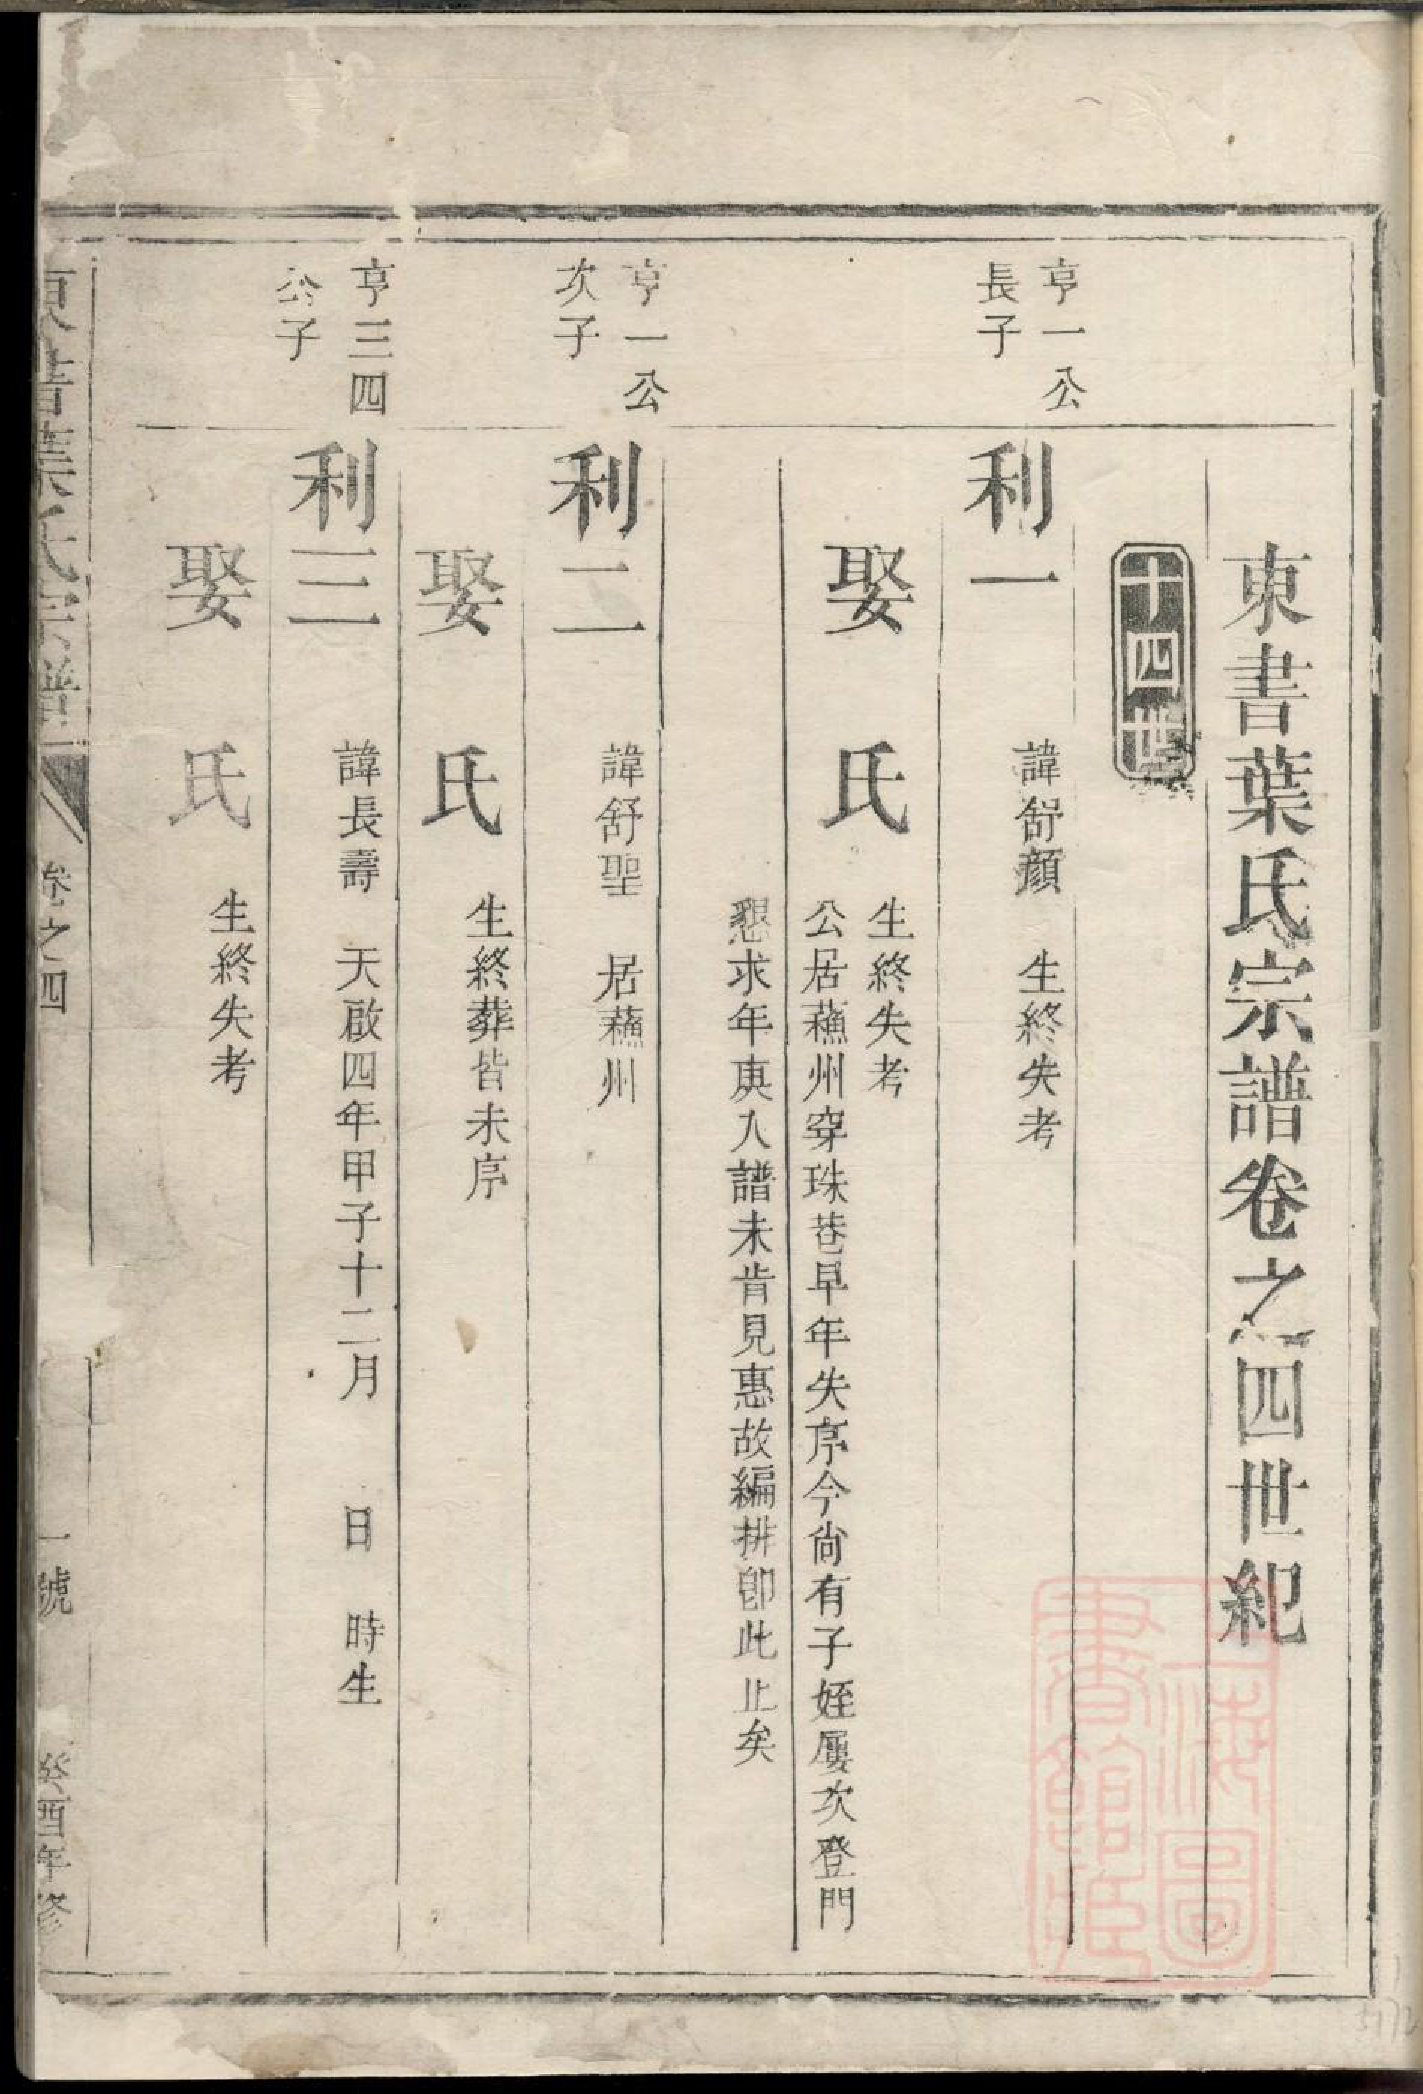 東書葉氏宗譜卷之四世紀
十四世
亨一公
長子
利一
諱舒顏 生終失考
娶氏
生終失考
公居蘓州穿珠巷早年失序今尚有子姪屢次登門
懇求年庚入譜未肯見惠故編排卽此止矣
亨一公
次子
利二
諱舒聖 居蘓州
娶氏
生終葬皆未序
亨三四
公子
利三
諱長壽 天啟四年甲子十二月 日 時生
娶氏
生終失考
東書葉氏宗譜
卷之四
一號
癸酉年修
上海圖
書館藏